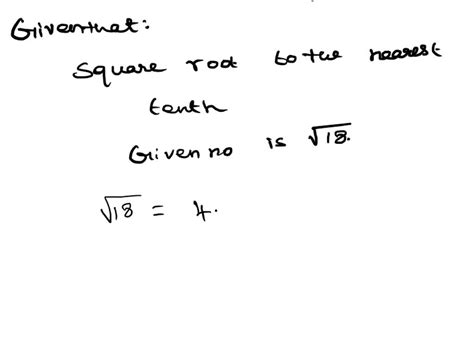 Given that:
Square root to the nearest
tenth
Given no is √18.
√18 = 4.